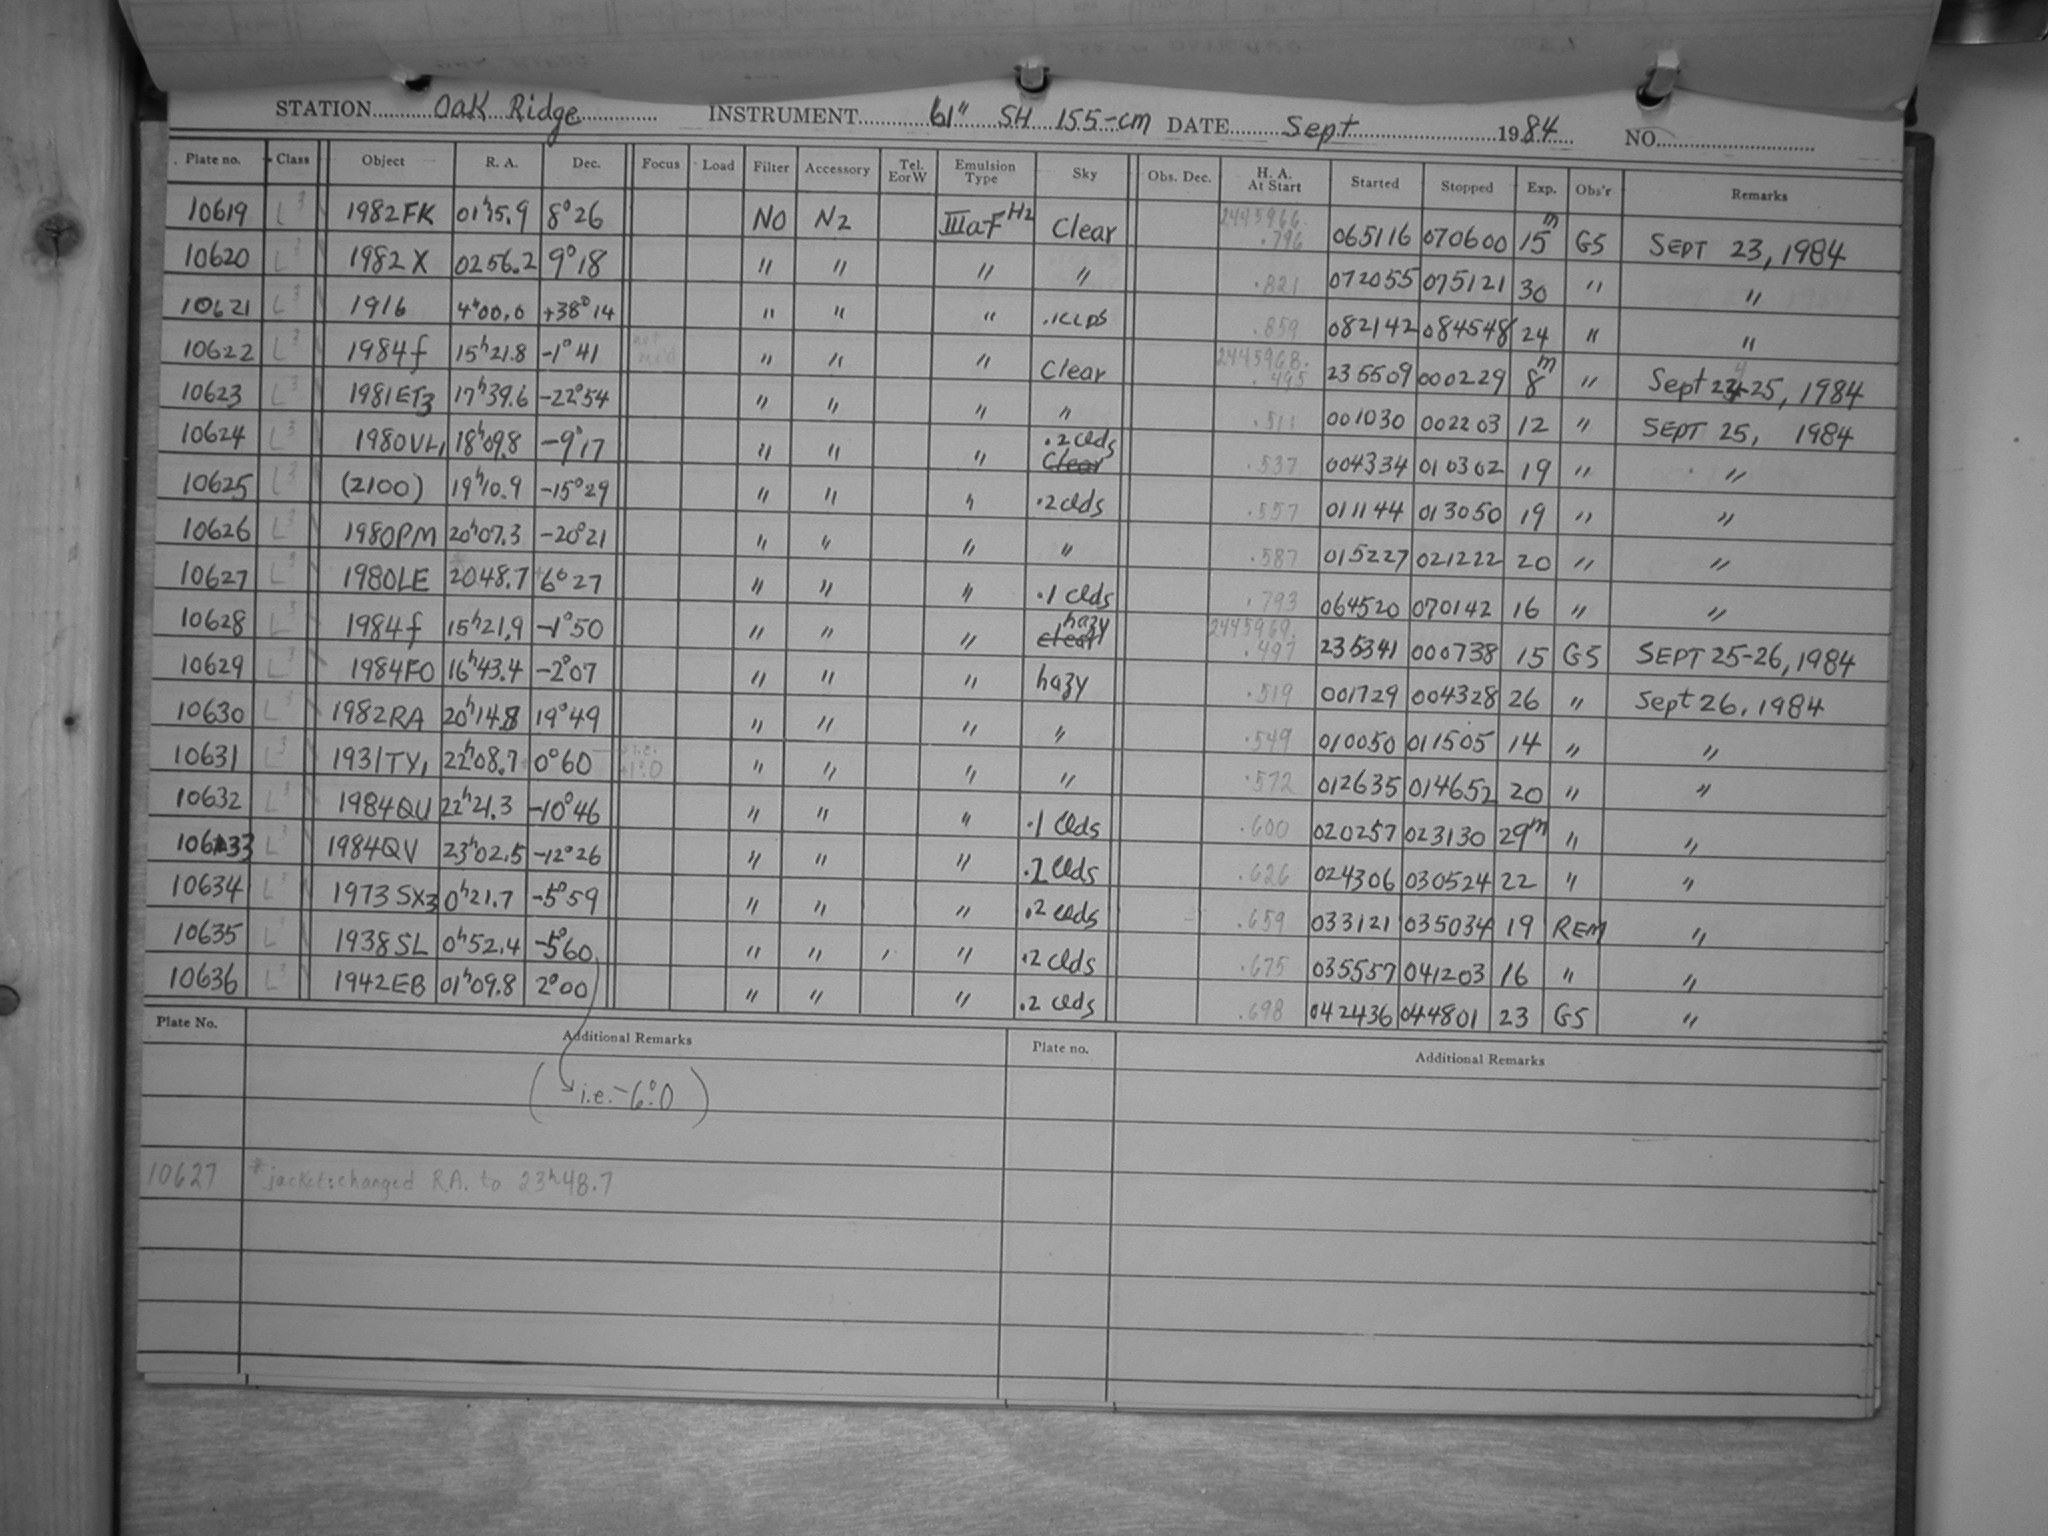 STATION Oak Ridge INSTRUMENT 61" SH 155-cm DATE Sept 1984 NO.
Plate no. Class Object R. A. Dec. Focus Load Filter Accessory Tel. E or W Emulsion Type Sky Obs. Dec. H. A. At Start Started Stopped Exp. Obs'r Remarks
10619 L3 1982FK 01h15.9 8°26 NO N2 IIIaF H2 Clear 2445966. .796 065116 070600 15m GS SEPT 23, 1984
10620 L3 1982X 0256.2 9°18 " " " " .821 072055 075121 30 " "
10621 L3 1916 4h00.0 +38°14 " " " .1CLDS .859 082142 084548 24 " "
10622 L3 1984f 15h21.8 -1°41 " " " Clear 2445968. .495 235509 000229 8m " Sept 24-25, 1984
10623 L3 1981ET3 17h39.6 -22°54 " " " " .511 001030 002203 12 " SEPT 25, 1984
10624 L3 1980VL1 18h09.8 -9°17 " " " .2 clds Clear .537 004334 010302 19 " "
10625 L3 (2100) 19h10.9 -15°29 " " " .2 clds .557 011144 013050 19 " "
10626 L3 1980PM 20h07.3 -20°21 " " " " .587 015227 021222 20 " "
10627 L3 1980LE *2048.7 +6°27 " " " .1 clds .793 064520 070142 16 " "
10628 L3 1984f 15h21.9 -1°50 " " " hazy clear 2445969. .497 235341 000738 15 GS SEPT 25-26, 1984
10629 L3 1984FO 16h43.4 -2°07 " " " hazy .519 001729 004328 26 " Sept 26, 1984
10630 L3 1982RA 20h14.8 19°49 " " " " .549 010050 011505 14 " "
10631 L3 1931TY1 22h08.7 +0°60 i.e. +1°.0 " " " " .572 012635 014652 20 " "
10632 L3 1984QU 22h21.3 -10°46 " " " .1 clds .600 020257 023130 29m " "
10633 L3 1984QV 23h02.5 -12°26 " " " .2 clds .626 024306 030524 22 " "
10634 L3 1973SX3 0h21.7 -5°59 " " " .2 clds .659 033121 035034 19 REM "
10635 L3 1938SL 0h52.4 -5°60 " " " .2 clds .675 035557 041203 16 " "
10636 L3 1942EB 01h09.8 2°00 " " " .2 clds .698 042436 044801 23 GS "
Plate No. Additional Remarks Plate no. Additional Remarks
( i.e. -6°.0 )
10627 *jacket: changed R.A. to 23h48.7